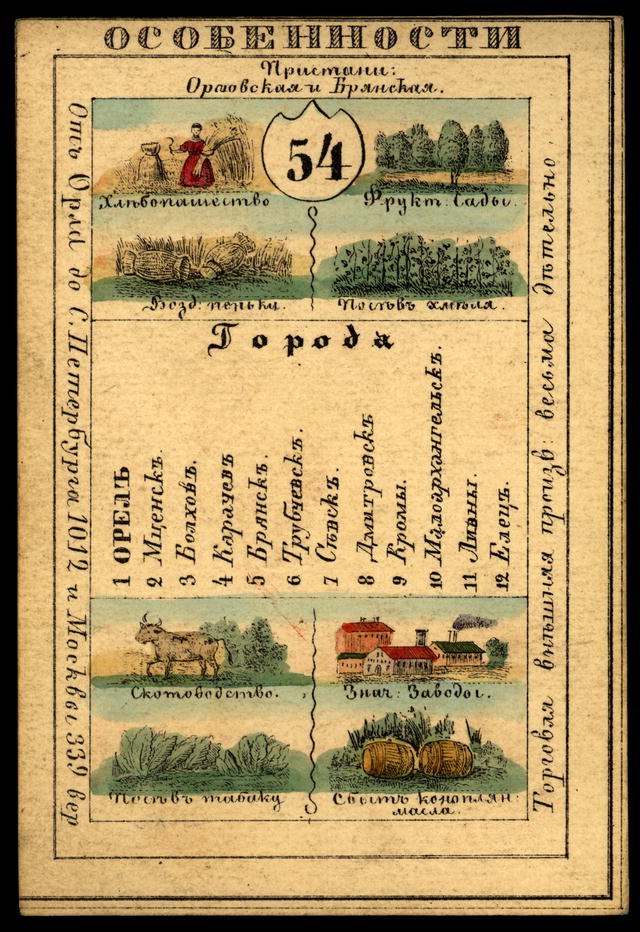 ОСОБЕННОСТИ
Пристани:
Орловская и Брянская.
54
Хлѣбопашество
Фрукт: Сады.
Возд: пеньки.
Посѣвъ хмѣля.
Города
1 ОРЕЛЪ
2 Мценскъ.
3 Болховъ.
4 Карачев
5 Брянскъ.
6 Трубчевскъ.
7 Сѣвскъ.
8 Дмитровскъ
9 Кромы.
10 Малоархангельскъ.
11 Ливны.
12 Елецъ.
Скотоводство.
Знач: Заводы.
Посѣвъ табаку
Сбытъ коноплян:
масла.
Отъ Орла до С. Петербурга 1012 и Москвы 339 вер
Торговля внѣшняя произв: весьма дѣтельно.